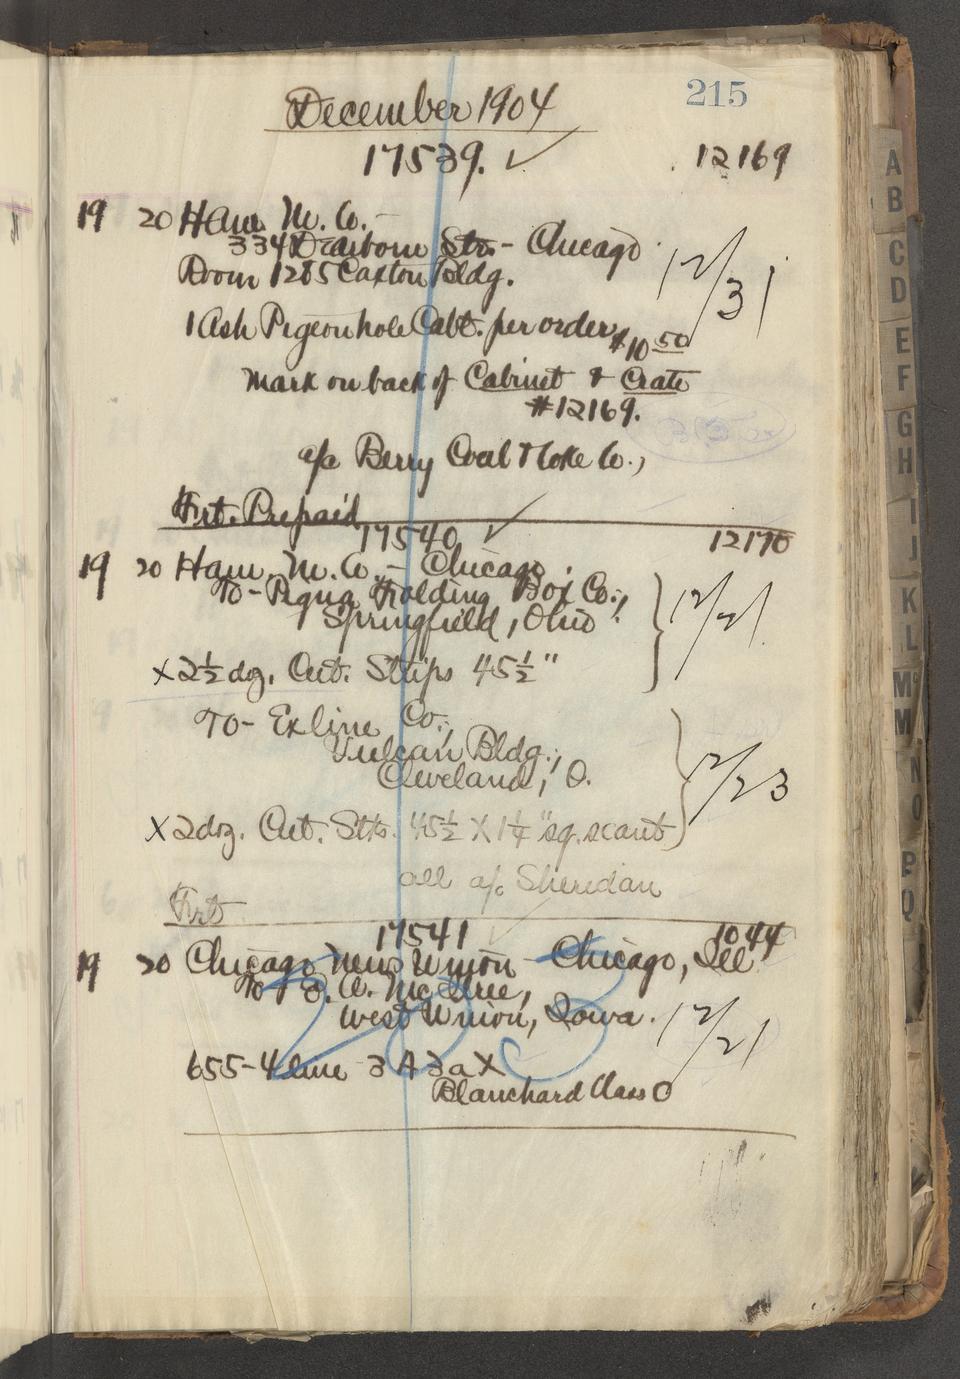 December 1904
215
17539. ✓
12169
19 20 Ham. M. Co. -
334 Dearborn Str. - Chicago
Room 1205 Caxton Bldg.
12/31
1 Ash Pigeonhole Cabt. per order $10 50
Mark on back of Cabinet & Crate
#12169.
a/c Berry Coal & Coke Co.,
Frt. Prepaid
17540 ✓
12170
19 20 Ham. M. Co. - Chicago.
To - Piqua Folding Box Co.,
Springfield, Ohio
12/21
x 2½ doz. Cut. Strips 45½"
To - Exline Co.,
Vulcan Bldg.,
Cleveland, O.
12/23
x 2 doz. Cut. Stks. 45½ X 1¼" sq. scant
all a/c Sheridan
Frt
17541
1044
19 20 Chicago News Union - Chicago, Ill
To
West Union, Iowa.
12/21
655 - 4 line 3 A 3 a X
Blanchard Class O
A
B
C
D
E
F
G
H
I
J
K
L
Mc
M
N
O
P
Q